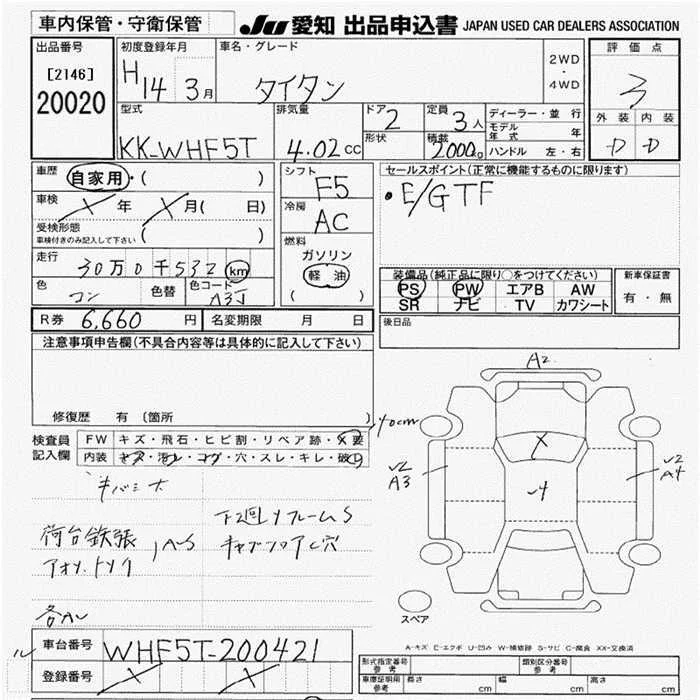 車内保管・守衛保管
JU 愛知 出品申込書 JAPAN USED CAR DEALERS ASSOCIATION
出品番号
[2146]
20020
初度登録年月
H14 3月
車名・グレード
タイタン
2WD
・
4WD
評価点
3
外装 内装
D D
型式
KK-WHF5T
排気量
4.02cc
ドア
2
形状
定員
3人
積載
2000kg
ディーラー・並行
モデル年式 年
ハンドル 左・右
車歴
自家用・( )
車検
メ年 メ月( 日)
受検形態
車検付きのみ記入して下さい ( )
走行
30万0千532km
色
コン
色替
色コード
A3J
シフト
F5
冷房
AC
燃料
ガソリン
軽油
( )
セールスポイント(正常に機能するものに限ります)
・E/GTF
装備品(純正品に限り○をつけてください)
PS PW エアB AW
SR ナビ TV カワシート
新車保証書
有・無
R券 6,660円
名変期限 月 日
後日品
注意事項申告欄(不具合内容等は具体的に記入して下さい)
修復歴 有〔箇所 〕
検査員記入欄
FW キズ・飛石・ヒビ割・リペア跡・X要
内装 キズ・汚レ・コゲ・穴・スレ・キレ・破レ
40cm
A2
X
√2
A3
√4
√2
A4
下廻りフレームS
キャブフロアC穴
荷台鉄張
A-S
スペア
A-キズ E-エクボ U-凹み W-補修跡 S-サビ C-腐食 XX-交換済
車台番号
WHF5T-200421
登録番号
形式指定番号 参考
類別区分番号 参考
車庫証明用 参考
長さ cm 幅 cm 高さ cm